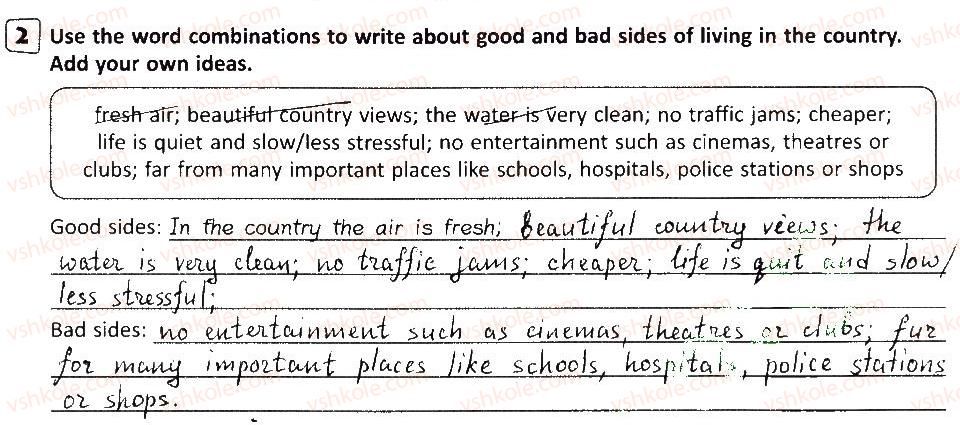 2 Use the word combinations to write about good and bad sides of living in the country.
Add your own ideas.
fresh air; beautiful country views; the water is very clean; no traffic jams; cheaper;
life is quiet and slow/less stressful; no entertainment such as cinemas, theatres or
clubs; far from many important places like schools, hospitals, police stations or shops
Good sides: In the country the air is fresh; beautiful country views; the
water is very clean; no traffic jams; cheaper; life is quit and slow/
less stressful;
Bad sides: no entertainment such as cinemas, theatres or clubs; fur
for many important places like schools, hospitals, police stations
or shops.